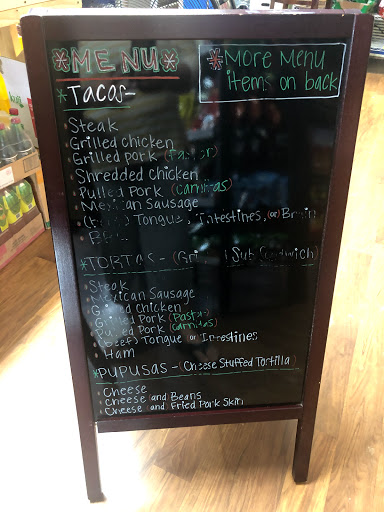 *MENU*
*More Menu
items on back
*Tacos-
Steak
Grilled chicken
Grilled Pork
Shredded chicken
Pulled Pork (carnitas)
Mexican Sausage
Tongue, Intestines, (or) Brain
*TORTAS- Sub Sandwich)
Steak
Mexican Sausage
Grilled Chicken
Grilled Pork
Pulled Pork (carnitas)
(Beef) Tongue or Intestines
Ham
*PUPUSAS-(Cheese Stuffed Tortilla)
Cheese
Cheese and Beans
Cheese and Fried Pork Skin